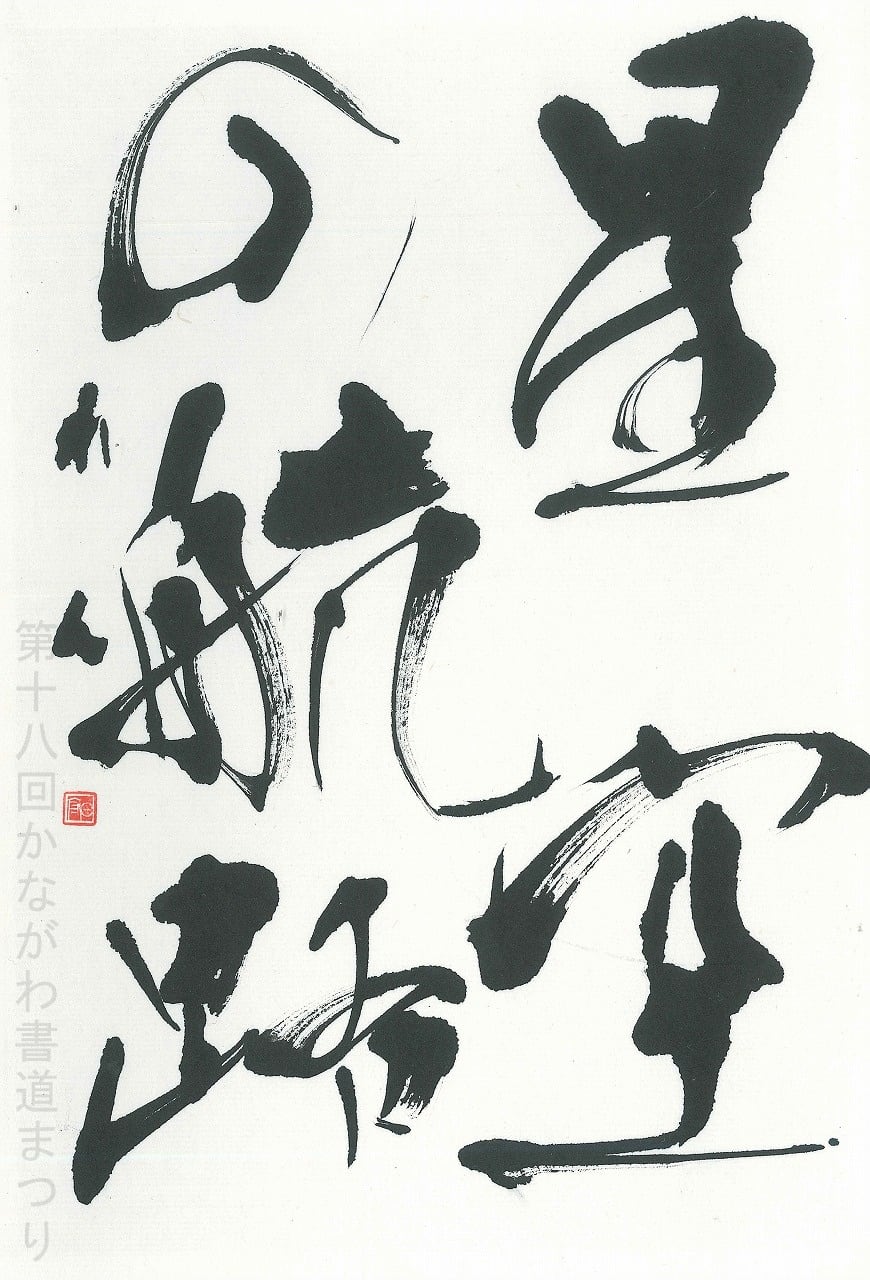 星空
の航路
第十八回かながわ書道まつり